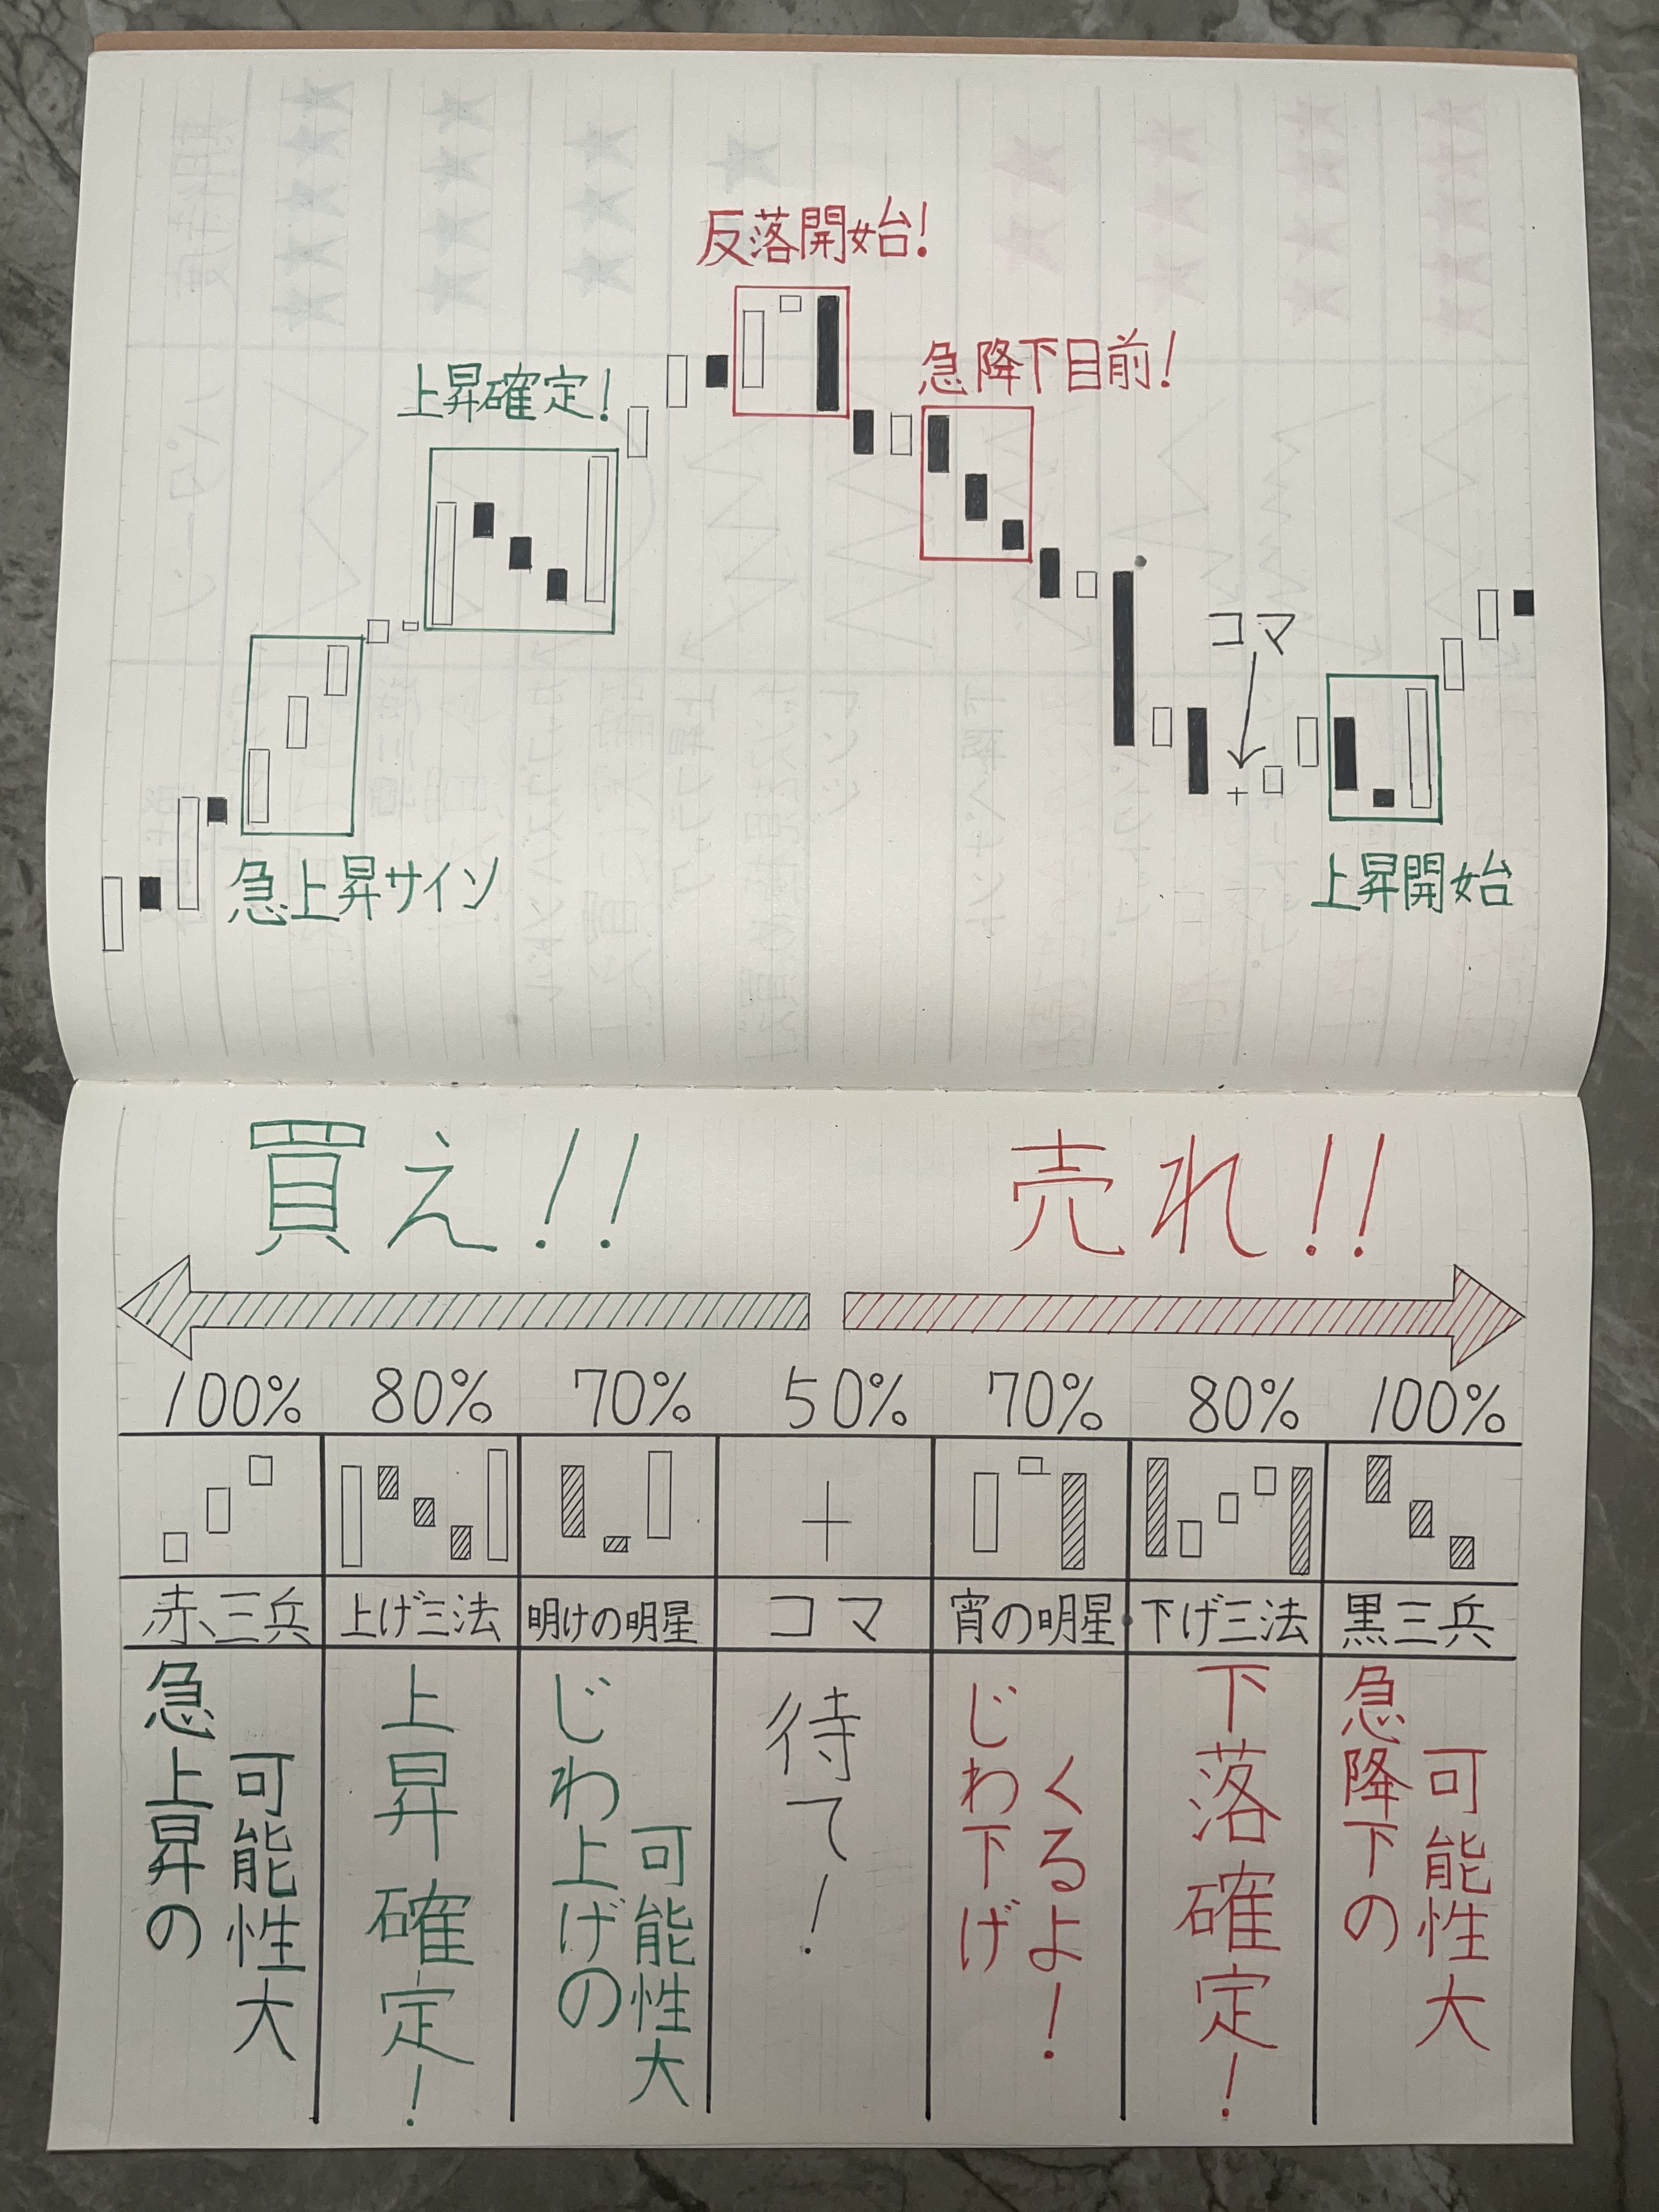 反落開始!
急降下目前!
上昇確定!
コマ
急上昇サイン
上昇開始
買え!!
売れ!!
100% 80% 70% 50% 70% 80% 100%
赤三兵 上げ三法 明けの明星 コマ 宵の明星 下げ三法 黒三兵
急上昇の
可能性大
上昇確定!
じわ上げの
可能性大
待て!
じわ下げ
くるよ!
下落確定!
急降下の
可能性大